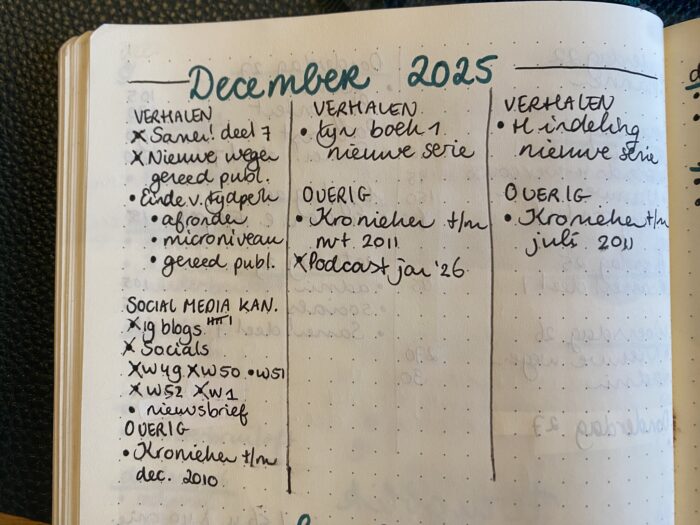 December 2025
VERHALEN
x Samen! deel 7
x Nieuwe wegen
gereed publ.
• Einde v. tijdperk
• afronden
• microniveau
• gereed publ.
SOCIAL MEDIA KAN.
x 19 blogs
x Socials
x W49 x W50 • W51
x W52 x W1
• nieuwsbrief
OVERIG
• Kronieken t/m
dec. 2010
VERHALEN
• tijn boek 1
nieuwe serie
OVERIG
• Kronieken t/m
mrt 2011
x Podcast jan '26
VERHALEN
• H indeling
nieuwe serie
OVERIG
• Kronieken t/m
juli 2011